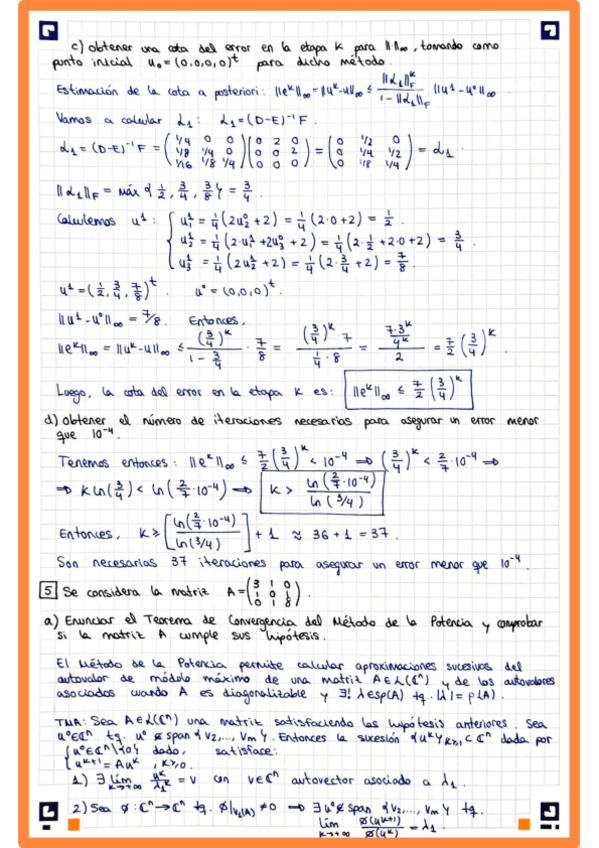 c) Obtener una cota del error en la etapa k para ||·||∞, tomando como
punto inicial u₀ = (0,0,0,0)ᵗ para dicho método.
Estimación de la cota a posteriori: ||eᵏ||∞ = ||uᵏ-u||∞ ≤ ||L₁||ᵏ_F / (1 - ||L₁||_F) ||u¹-u⁰||∞
Vamos a calcular L₁: L₁ = (D-E)⁻¹F
L₁ = (D-E)⁻¹F = (1/4 0 0; 1/8 1/4 0; 1/16 1/8 1/4)(0 2 0; 0 0 2; 0 0 0) = (0 1/2 0; 0 1/4 1/2; 0 1/8 1/4) = L₁
||L₁||_F = máx {1/2, 3/4, 3/8} = 3/4.
Calculemos u¹: { u¹₁ = 1/4(2u⁰₂+2) = 1/4(2·0+2) = 1/2
u¹₂ = 1/4(2·u¹₁+2u⁰₃+2) = 1/4(2·1/2+2·0+2) = 3/4
u¹₃ = 1/4(2u¹₂+2) = 1/4(2·3/4+2) = 7/8.
u¹ = (1/2, 3/4, 7/8)ᵗ. u⁰ = (0,0,0)ᵗ.
||u¹-u⁰||∞ = 7/8. Entonces,
||eᵏ||∞ = ||uᵏ-u||∞ ≤ (3/4)ᵏ / (1 - 3/4) · 7/8 = (3/4)ᵏ·7 / (1/4·8) = (7·3ᵏ/4ᵏ) / 2 = 7/2 (3/4)ᵏ
Luego, la cota del error en la etapa k es: ||eᵏ||∞ ≤ 7/2 (3/4)ᵏ
d) Obtener el número de iteraciones necesarias para asegurar un error menor
que 10⁻⁴.
Tenemos entonces: ||eᵏ||∞ ≤ 7/2 (3/4)ᵏ < 10⁻⁴ ⇒ (3/4)ᵏ < 2/7·10⁻⁴ ⇒
⇒ k ln(3/4) < ln(2/7·10⁻⁴) ⇒ k > ln(2/7·10⁻⁴) / ln(3/4)
Entonces, k ≥ [ln(2/7·10⁻⁴) / ln(3/4)] + 1 ≈ 36 + 1 = 37.
Son necesarias 37 iteraciones para asegurar un error menor que 10⁻⁴.
5 Se considera la matriz A = (3 1 0; 1 0 1; 0 1 8).
a) Enunciar el Teorema de Convergencia del Método de la Potencia y comprobar
si la matriz A cumple sus hipótesis.
El Método de la Potencia permite calcular aproximaciones sucesivas del
autovalor de módulo máximo de una matriz A∈L(ℂⁿ) y de los autovalores
asociados cuando A es diagonalizable y ∃! λ∈sp(A) tq. |λ| = ρ(A).
TMA: Sea A∈L(ℂⁿ) una matriz satisfaciendo las hipótesis anteriores. Sea
u⁰∈ℂⁿ tq. u⁰ ∉ span{v₂,..., vₘ}. Entonces la sucesión {uᵏ}ₖ≥₁ ⊂ ℂⁿ dada por
{ u⁰∈ℂⁿ\{0} dado, satisface:
uᵏ⁺¹ = Auᵏ, k≥0.
1) ∃ lím k→+∞ uᵏ/λ₁ᵏ = v con v∈ℂⁿ autovector asociado a λ₁.
2) Sea ∅: ℂⁿ→ℂ tq. ∅|v₁(A) ≠ 0 ⇒ ∃ u⁰∉span {v₂,..., vₘ} tq.
lím k→+∞ ∅(uᵏ⁺¹)/∅(uᵏ) = λ₁.